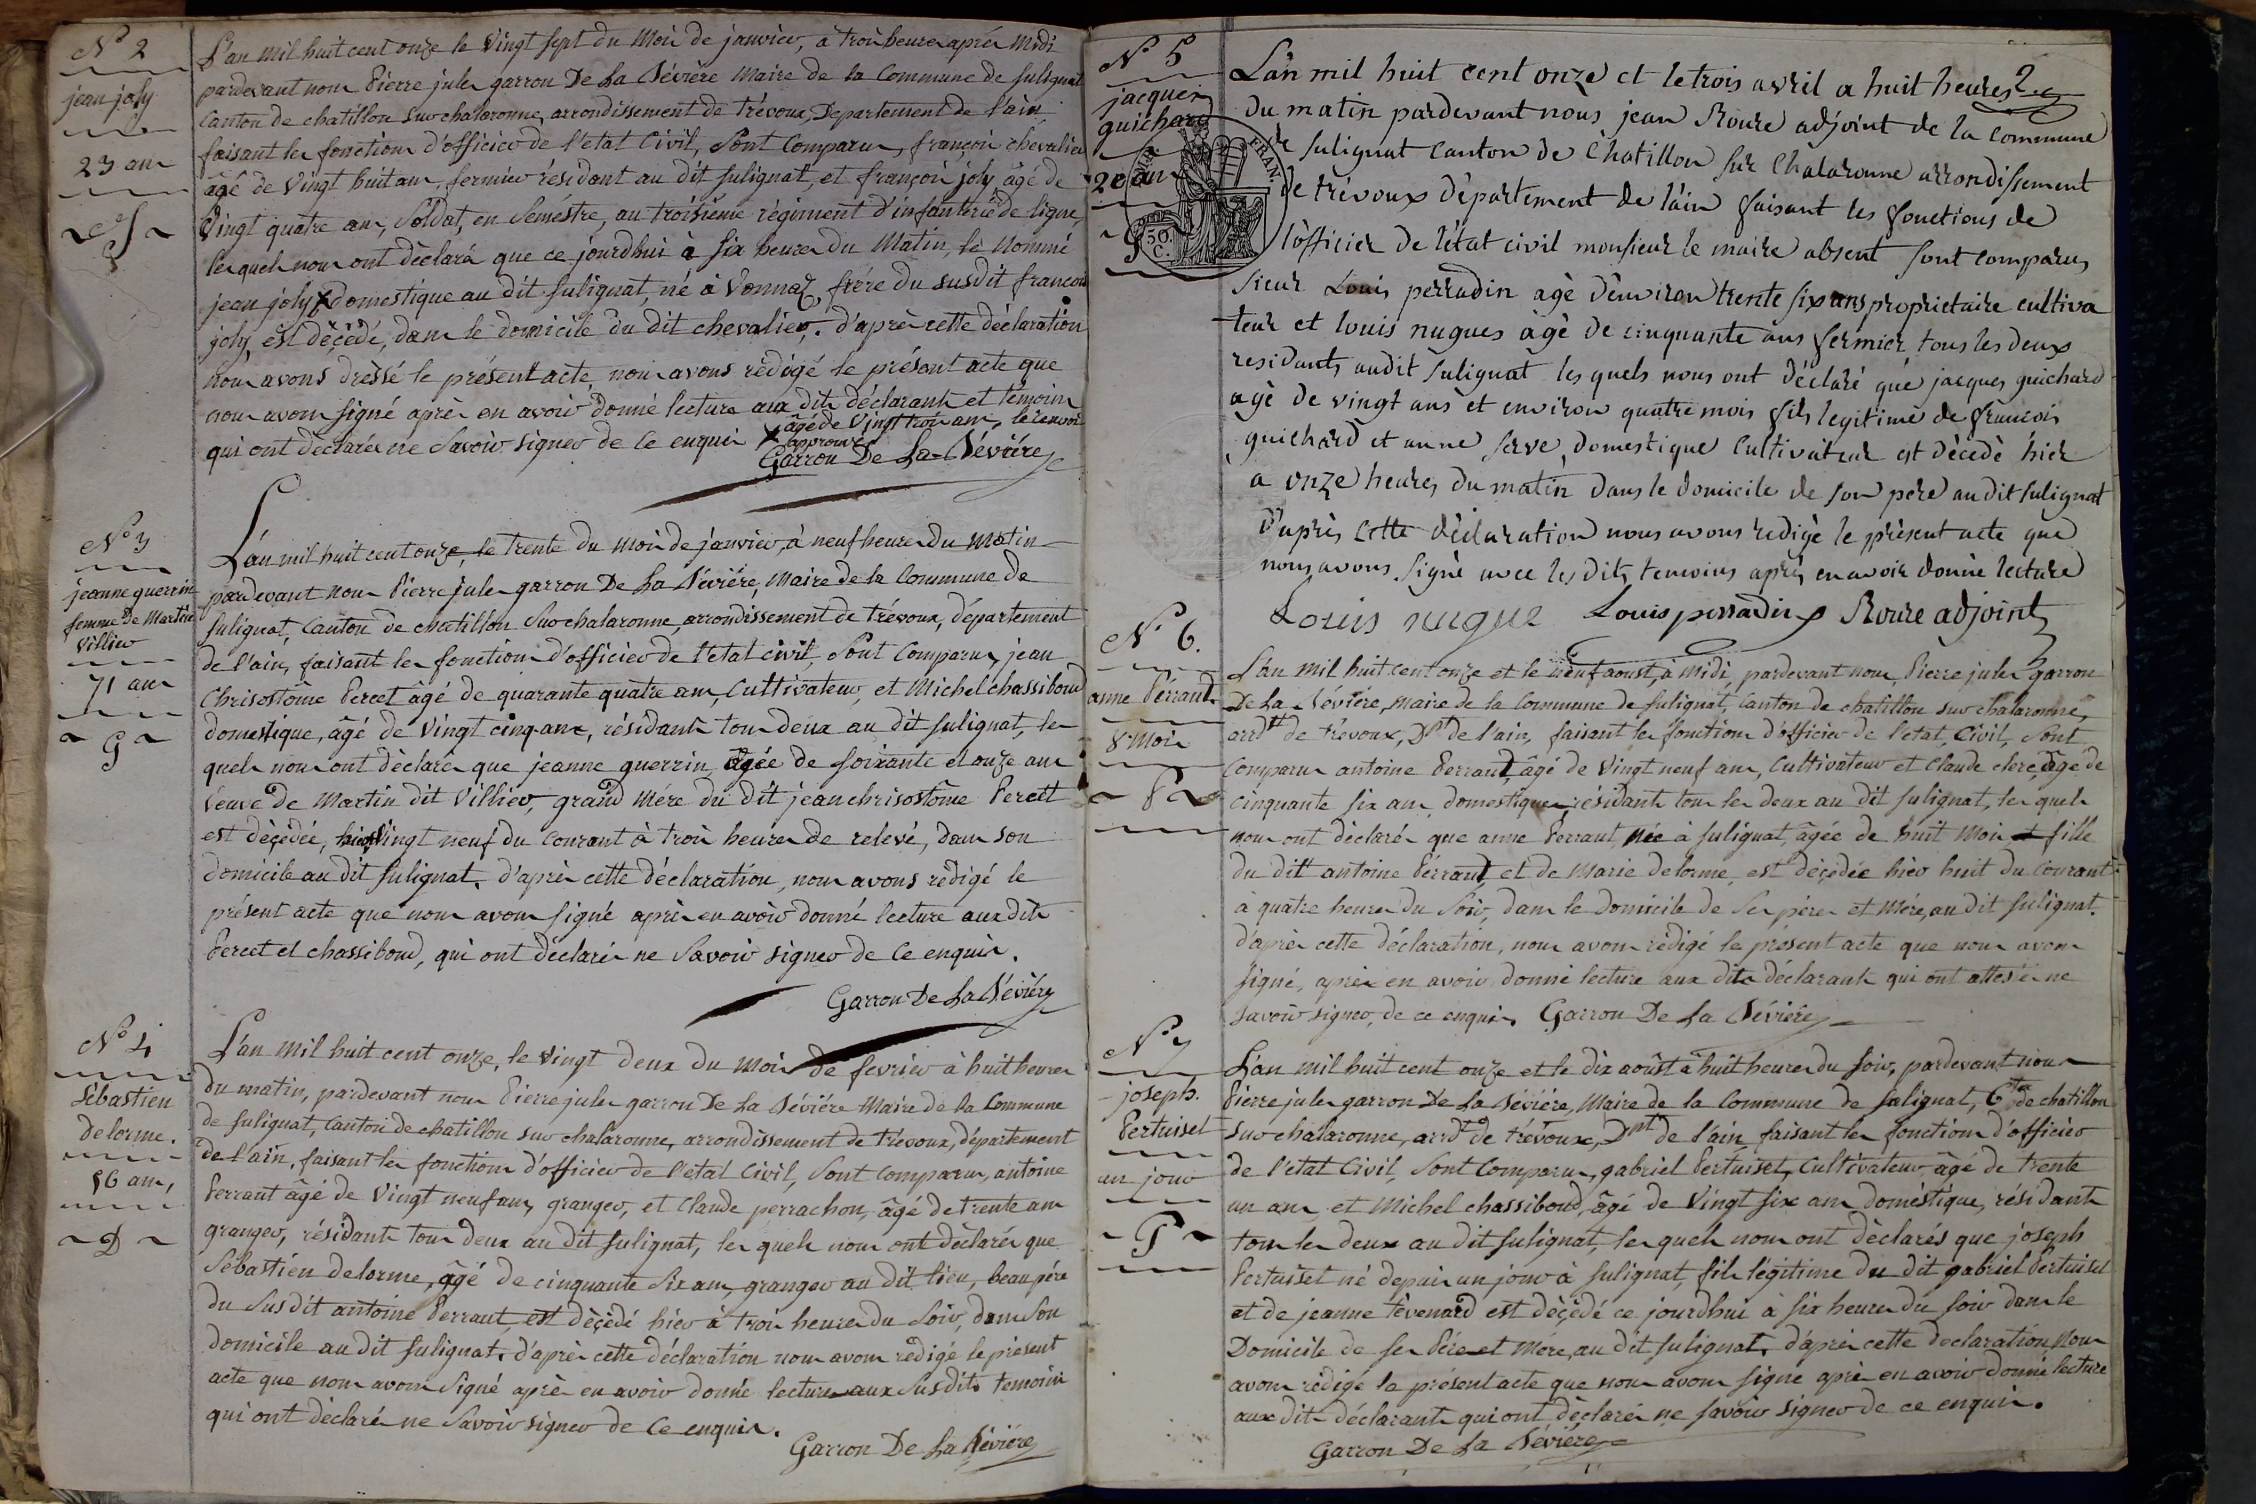 N° 2
jean joly
23 ans
J
L'an mil huit cent onze le vingt sept du mois de janvier, à trois heures après midi
pardevant nous Pierre jules garron De La Sévière Maire de la Commune de sulignat
Canton de chatillon sur chalaronne, arrondissement de trévoux, Departement de l'ain,
faisant les fonctions d'officier de l'etat Civil, Sont Comparus, françois chevalier
âgé de vingt huit ans, fermier résidant au dit sulignat, et françois joly âgé de
vingt quatre ans, Soldat, en Seméstre, au troisième règiment d'infanterie de ligne
lesquels nous ont dèclaré que ce jourdhui à six heures du Matin, le Nommé
jean joly X domestique au dit sulignat, né à Vonnaz, frére du susdit francois
joly, est dècèdé, dans le domicile du dit chevalier. d'après cette déclaration
nous avons drèssé le présent acte, nous avons rédigé le présent acte que
nous avons signé après en avoir donné lecture aux dits déclarants et témoins
qui ont dèclarés ne Savoir signer de ce enquis X âgé de vingt trois ans, le renvoi
approuvé
Garron De La Sévière
N° 3
jeanne guerrin
femme de Martin
villier
71 ans
G
L'an mil huit cent onze, le trente du mois de janvier, à neuf heures du matin
pardevant nous Pierre jules garron De La Sévière, Maire de la Commune de
sulignat, Canton de chatillon Sur chalaronne, arrondissement de trévoux, département
de l'ain, faisant les fonctions d'officier de l'etat civil, Sont Comparus, jean
Chrisostôme Percet âgé de quarante quatre ans, Cultivateur, et Michel chassiboud
domestique, âgé de vingt cinq ans, résidants tous deux au dit sulignat, les
quels nous ont dèclarés que jeanne guerrin âgée de soixante et onze ans
veuve de Martin dit Villier, grand Mére du dit jean chrisostôme Percet
est dècèdée, hier vingt neuf du Courant à trois heures de relevé, dans son
domicile au dit sulignat. d'après cette déclaration, nous avons rédigé le
présent acte que nous avons signé après en avoir donné lecture aux dits
Percet et chassiboud, qui ont dèclarés ne Savoir signer de Ce enquis.
Garron De La Sévière
N° 4
Sébastien
delorme.
56 ans,
D
L'an mil huit cent onze, le vingt deux du mois de fevrier à huit heures
du matin, pardevant nous Pierre jules garron De La Sévière Maire de la Commune
de sulignat, Canton de chatillon sur chalaronne, arrondissement de trévoux, département
de l'ain, faisant les fonctions d'officier de l'etat Civil, Sont Comparus, antoine
Perraut âgé de vingt neuf ans, granger, et Claude perrachon, âgé de trente ans
granger, résidants tous deux au dit sulignat, les quels nous ont dèclarés que
Sébastién delorme, âgé de cinquante Six ans, granger au dit lieu, beau pére
du Susdit antoine Perraut, est dècèdé hier à trois heures du Soir, dans Son
domicile au dit sulignat. d'après cette déclaration nous avons rédigé le présent
acte que nous avons signé après en avoir donné lecture aux Susdits temoins
qui ont dèclarés ne Savoir signer de Ce enquis.
Garron De La Sévière
N° 5
jacques
guichard
20 ans
G
FRAN.
50.
C.
L'an mil huit cent onze et le trois avril a huit heures
du matin pardevant nous jean Roure adjoint de la commune
de sulignat canton de Chatillon sur Chalaronne arrondissement
de trévoux département de l'ain faisant les fonctions de
l'officier de l'état civil monsieur le maire absent sont comparus
sieur Louis perradin agè d'environ trente six ans proprietaire cultiva
teur et louis nugues àgè de cinquante ans fermier tous les deux
residants audit sulignat les quels nous ont déclaré que jacques guichard
agè de vingt ans et environ quatre mois fils legitime de francois
guichard et anne serve, domestique Cultivateur est dècèdè hier
a onze heures du matin dans le domicile de son pere au dit sulignat
D'après cette déclaration nous avons redigè le prèsent acte que
nous avons signè avec les dits temoins après en avoir donnè lecture
Louis nugue Louis perradin Roure adjoint
N° 6.
anne Pérraut
8 Mois
P
L'an mil huit cent onze et le neuf aoust, à Midi, pardevant nous Pierre jules garron
De La Sévière, Maire de la Commune de sulignat, Canton de chatillon sur chalaronne,
arrdt de trévoux, Dpt de l'ain, faisant les fonctions d'officier de l'etat, Civil, Sont
Comparus antoine Perraut, âgé de vingt neuf ans, Cultivateur et Claude clerc, âgé de
cinquante six ans, domestique, résidants tous les deux au dit sulignat, les quels
nous ont dèclarés que anne Perraut, née à sulignat, âgée de huit Mois fille
du dit antoine Pérraut et de Marie delorme, est dècèdée hier huit du courant
à quatre heures du Soir, dans le domicile de Ses père et Mére, au dit sulignat.
d'après cette déclaration, nous avons rédigé le présent acte que nous avons
signé, après en avoir donné lecture aux dits déclarants qui ont attestés ne
savoir signer, de ce enquis. Garron De La Sévière
N° 7
joseph.
Pertuiset
un jour
P
L'an mil huit cent onze et le dix aoûst à huit heures du soir, pardevant nous
Pierre jules garron De La Sévière, Maire de la Commune de sulignat, Cton de chatillon
Sur chalaronne, arrdt de trévoux, Dpt de l'ain, faisant les fonctions d'officier
de l'etat Civil, Sont Comparus, gabriel Pertuiset, Cultivateur âgé de trente
un ans, et Michel chassiboud, âgé de vingt six ans doméstique, résidants
tous les deux au dit sulignat, les quels nous ont dèclarés que joseph
Pertuiset né depuis un jour à sulignat, fils légitime du dit gabriel Pertuiset
et de jeanne tèvenard est dècèdé ce jourdhui à six heures du soir dans le
Domicile de ses Pére et Mére, au dit sulignat, d'après cette declaration, Nous
avons rédigé le présent acte que nous avons signé après en avoir donné lecture
aux dits déclarants qui ont dèclarés ne savoir signer de ce enquis.
Garron De La Sévière